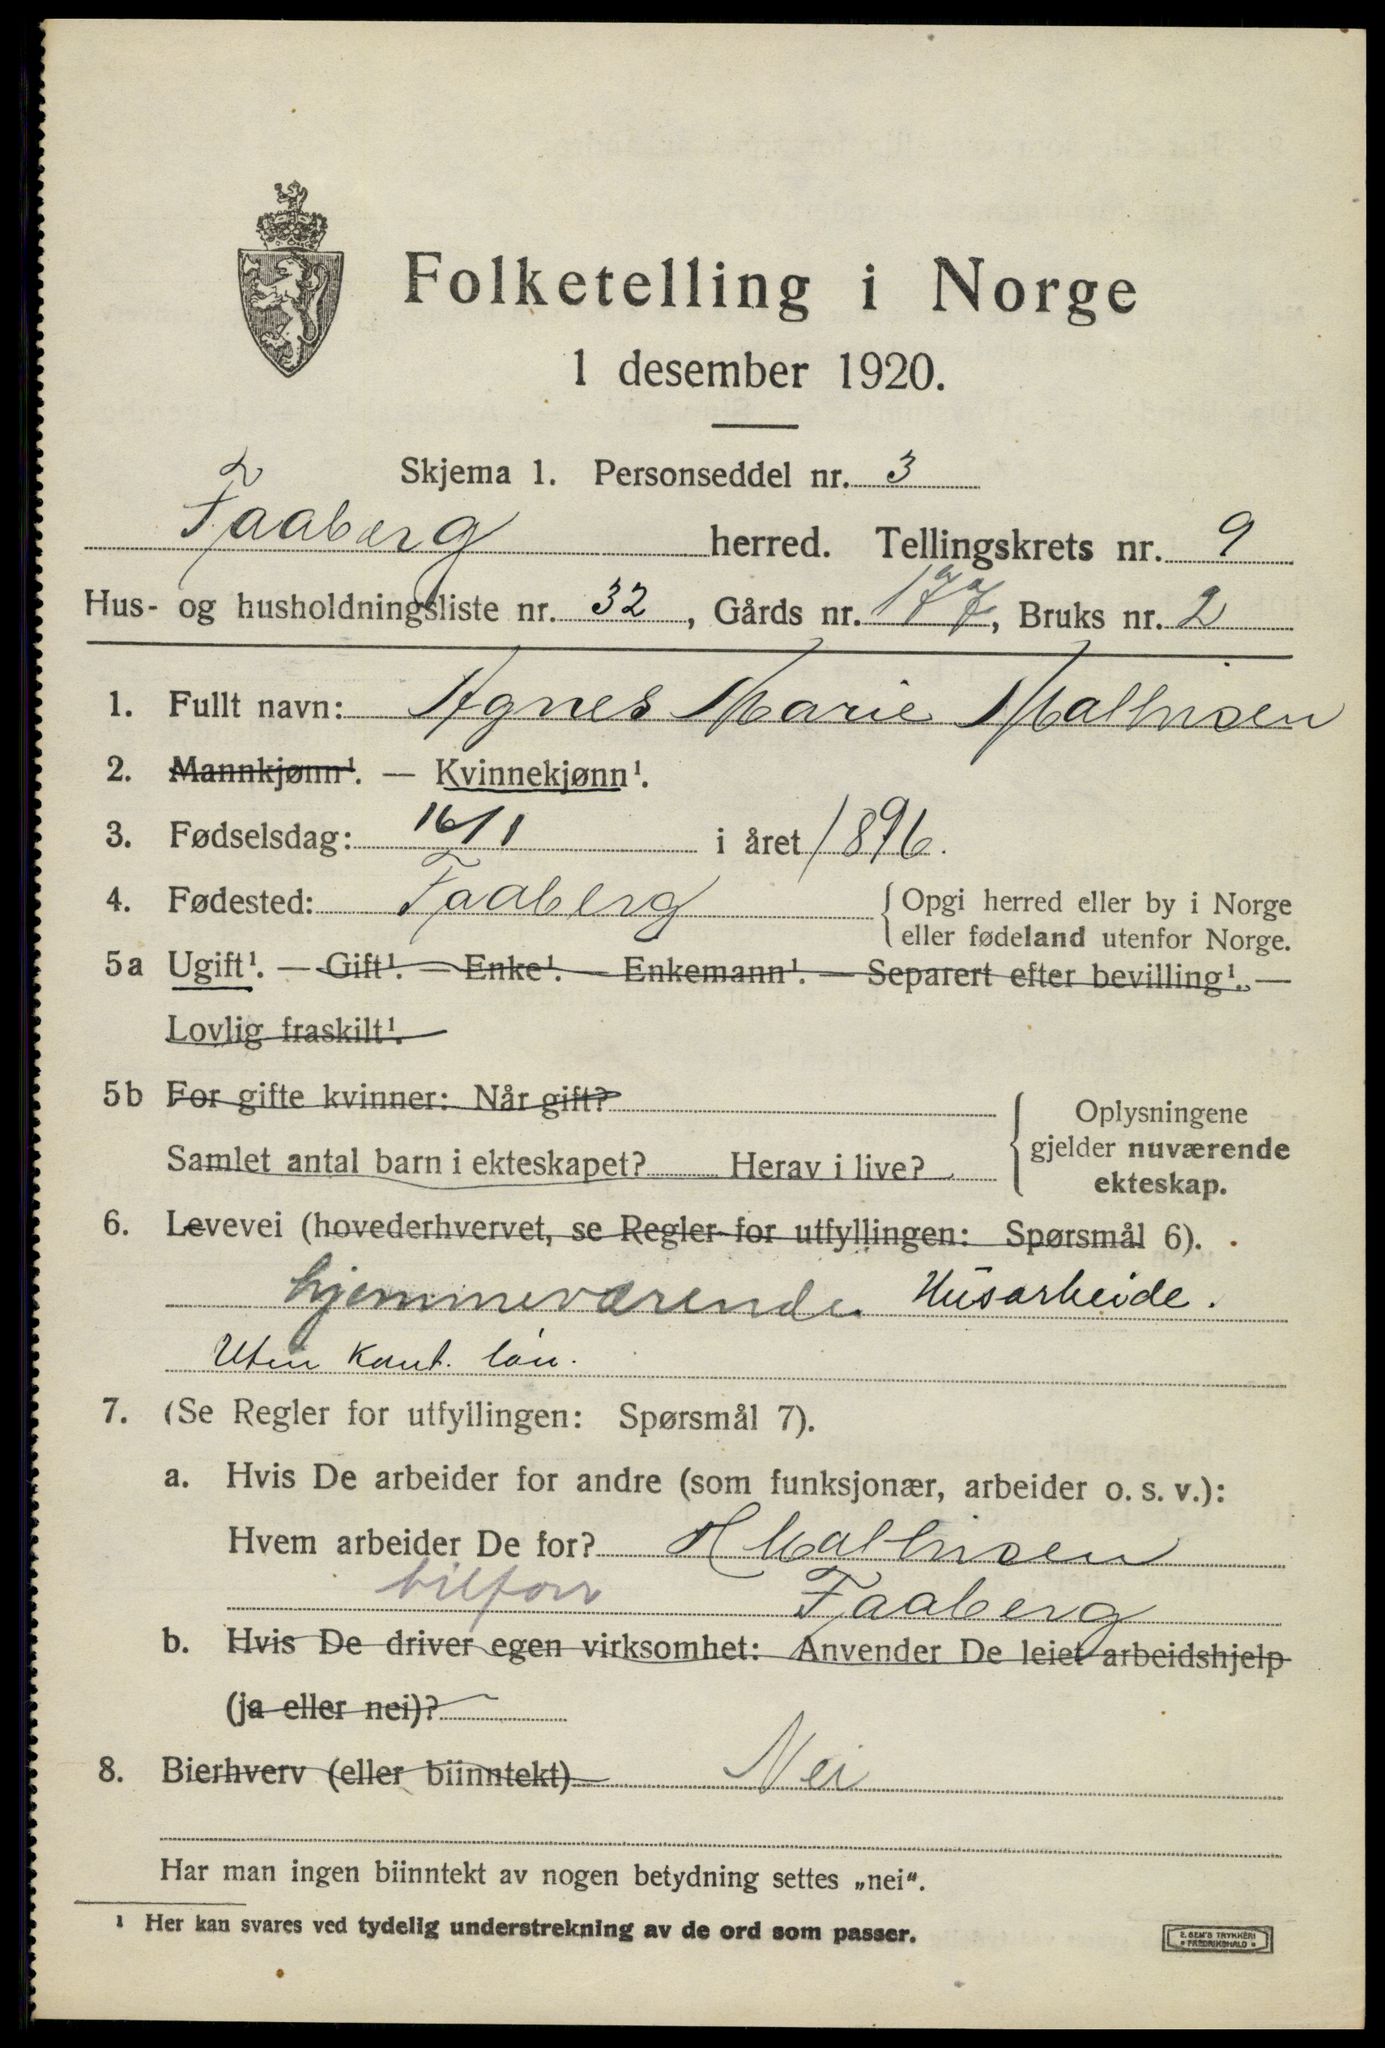 Folketelling i Norge
1 desember 1920.
Skjema 1. Personseddel nr. 3
Faaberg herred. Tellingskrets nr. 9
Hus- og husholdningsliste nr. 32, Gårds nr. 177, Bruks nr. 2
1. Fullt navn: Agnes Marie Mathisen
2. Mannkjønn¹. — Kvinnekjønn¹.
3. Fødselsdag: 16/1 i året 1896.
4. Fødested: Faaberg { Opgi herred eller by i Norge
eller fødeland utenfor Norge.
5a Ugift¹. — Gift¹. — Enke¹. — Enkemann¹. — Separert efter bevilling¹. —
Lovlig fraskilt¹.
5b For gifte kvinner: Når gift?
Samlet antal barn i ekteskapet? Herav i live?
Oplysningene
gjelder nuværende
ekteskap.
6. Levevei (hovederhvervet, se Regler for utfyllingen: Spørsmål 6).
hjemmeværende Husarbeide.
Uten kont. lön.
7. (Se Regler for utfyllingen: Spørsmål 7).
a. Hvis De arbeider for andre (som funksjonær, arbeider o. s. v.):
Hvem arbeider De for? H Mathisen
Faaberg
b. Hvis De driver egen virksomhet: Anvender De leiet arbeidshjelp
(ja eller nei)?
8. Bierhverv (eller biinntekt) Nei
Har man ingen biinntekt av nogen betydning settes „nei“.
¹ Her kan svares ved tydelig understrekning av de ord som passer.
E. SEM'S TRYKKERI
FREDRIKSHALD